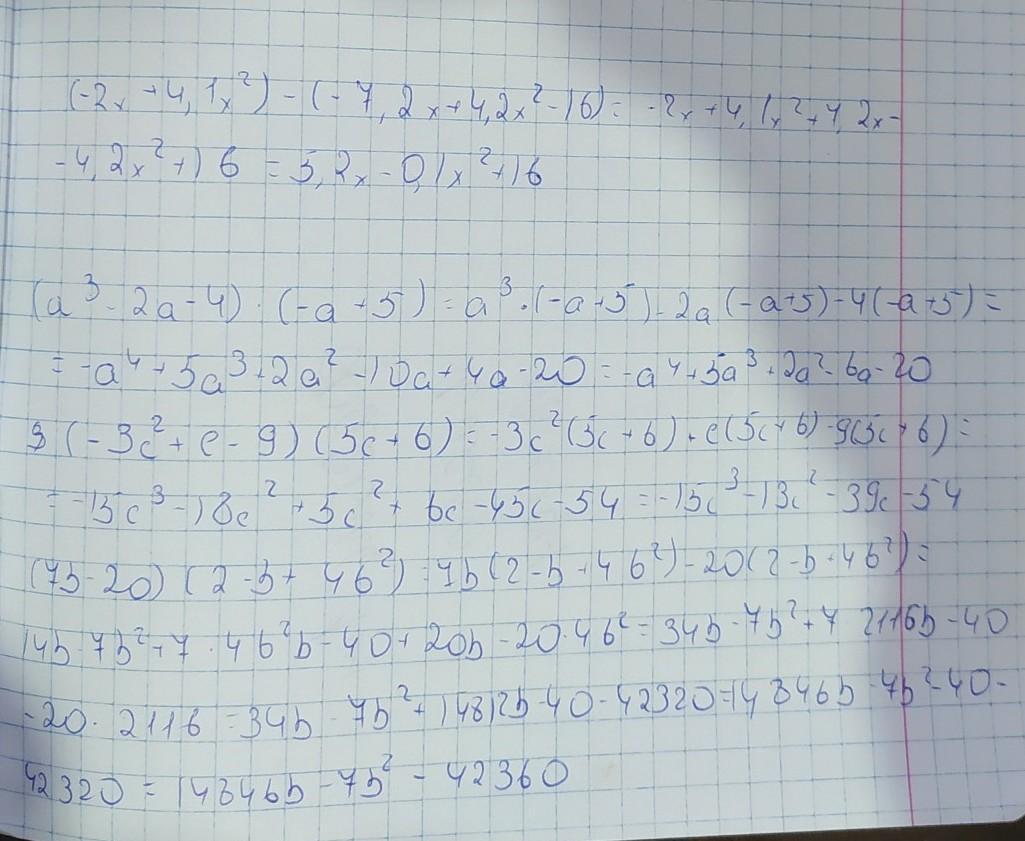 (-2x+4,1x²)-(-7,2x+4,2x²-16)=-2x+4,1x²+7,2x-
-4,2x²+16=5,2x-0,1x²+16
(a³-2a-4)·(-a+5)=a³·(-a+5)-2a(-a+5)-4(-a+5)=
=-a⁴+5a³+2a²-10a+4a-20=-a⁴+5a³+2a²-6a-20
3(-3c²+c-9)(5c+6)=-3c²(5c+6)+c(5c+6)-9(5c+6)=
=-15c³-18c²+5c²+6c-45c-54=-15c³-13c²-39c-54
(7b-20)(2-b+46²)=7b(2-b+46²)-20(2-b+46²)=
14b-7b²+7·46²b-40+20b-20·46²=34b-7b²+7·2116b-40
-20·2116=34b-7b²+14812b-40-42320=14846b-7b²-40-
42320=14846b-7b²-42360